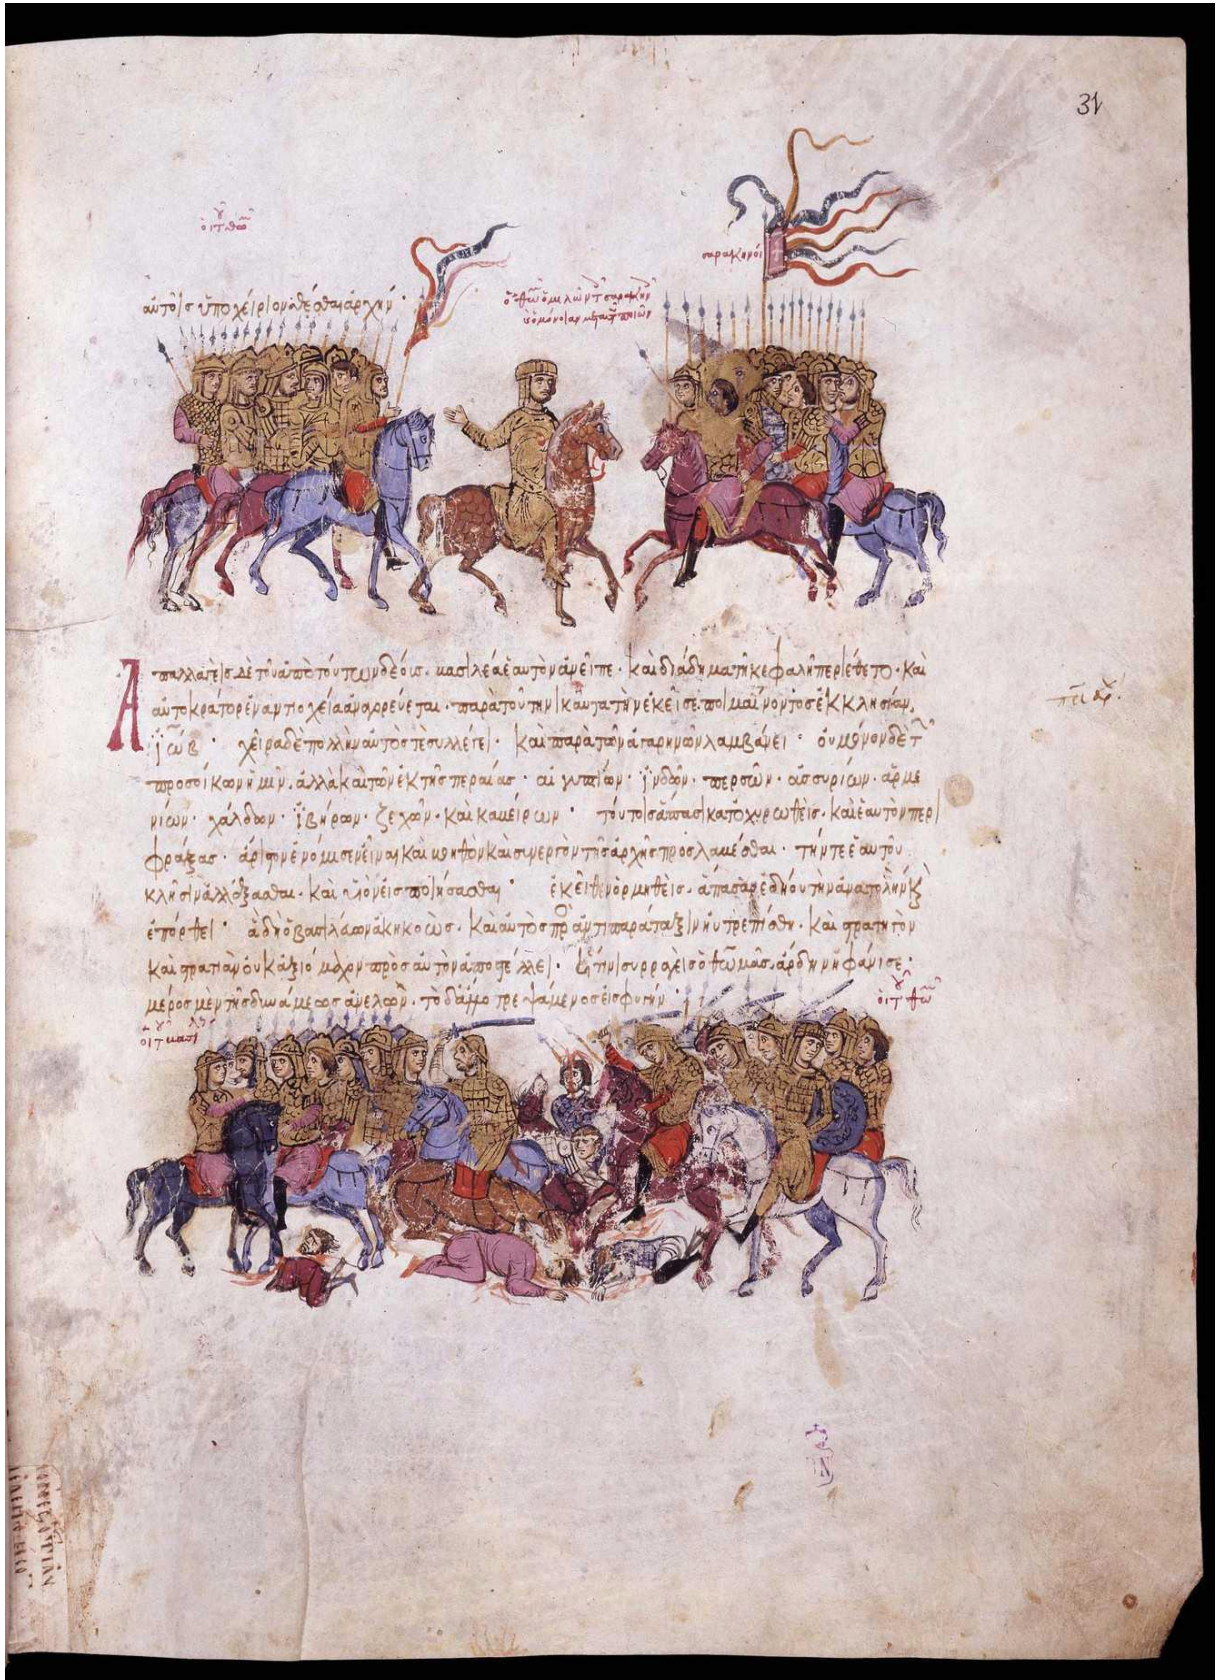 31
οἱ τοῦ θω
σαρακηνοί
αὐτοῖς ὑποχείριον θέσθαι ἀρχήν·
ὁ θω ὁμιλῶν τ σαρακην
ὁμόνοιαν μετ ποιῶν
Ἀπαλλαγεὶς δὲ τοῦ ἀπὸ τούτων δέους. βασιλέα ἑαυτὸν ἀνεῖπε· καὶ διάδημα τῇ κεφαλῇ περιέθετο· καὶ
αὐτοκράτωρ ἐν ἀντιοχεία ἀναγορεύεται· παρὰ τοῦ τηνικαῦτα τὴν ἐκεῖσε ποιμαίνοντος ἐκκλησίαν.
ἰὼβ· χεῖρα δὲ πολλὴν αὐτός τε συλλέγει· καὶ παρὰ τῶν ἀγαρηνῶν λαμβάνει· οὐ μόνον δὲ τ
προσοίκων ἡμῖν. ἀλλὰ καὶ τῶν ἐκ τῆς περαίας· αἰγυπτίων· ἰνδῶν· περσῶν· ἀσσυρίων· ἀρμε
νίων· χάλδων· ἰβήρων· ζεχῶν· καὶ καβείρων· τούτοις ἅπασι κατοχυρωθεὶς. καὶ ἑαυτὸν περι
φράξας· ἄριστον ἐνόμισεν εἶναι καὶ βοηθὸν καὶ συνεργὸν τῆς ἀρχῆς προσλαβέσθαι· τήν τε ἑαυτοῦ
κλῆσιν ἀλλάξασθαι. καὶ υἱὸν εἰσποιήσασθαι· ἐκεῖθεν ὁρμηθεὶς. ἅπασαν ἐδῄου τὴν ἀνατολὴν κ
ἐπόρθει· ἃ δὴ ὁ βασιλεὺς ἀκηκοὼς. καὶ αὐτὸς πρὸς ἀντιπαράταξιν ηὐτρεπίσθη. καὶ στρατηγὸν
καὶ στρατιὰν οὐκ ἀξιόμαχον πρὸς αὐτὸν ἀποστέλλει· ᾗτινι συρραγεὶς ὁ θωμᾶς. ἄρδην ἠφάνισε·
μέρος μὲν τῆς δυνάμεως ἀνελών. τὸ δ' ἄλλο τρεψάμενος εἰς φυγήν·
οἱ τοῦ θω
οἱ τοῦ βασι